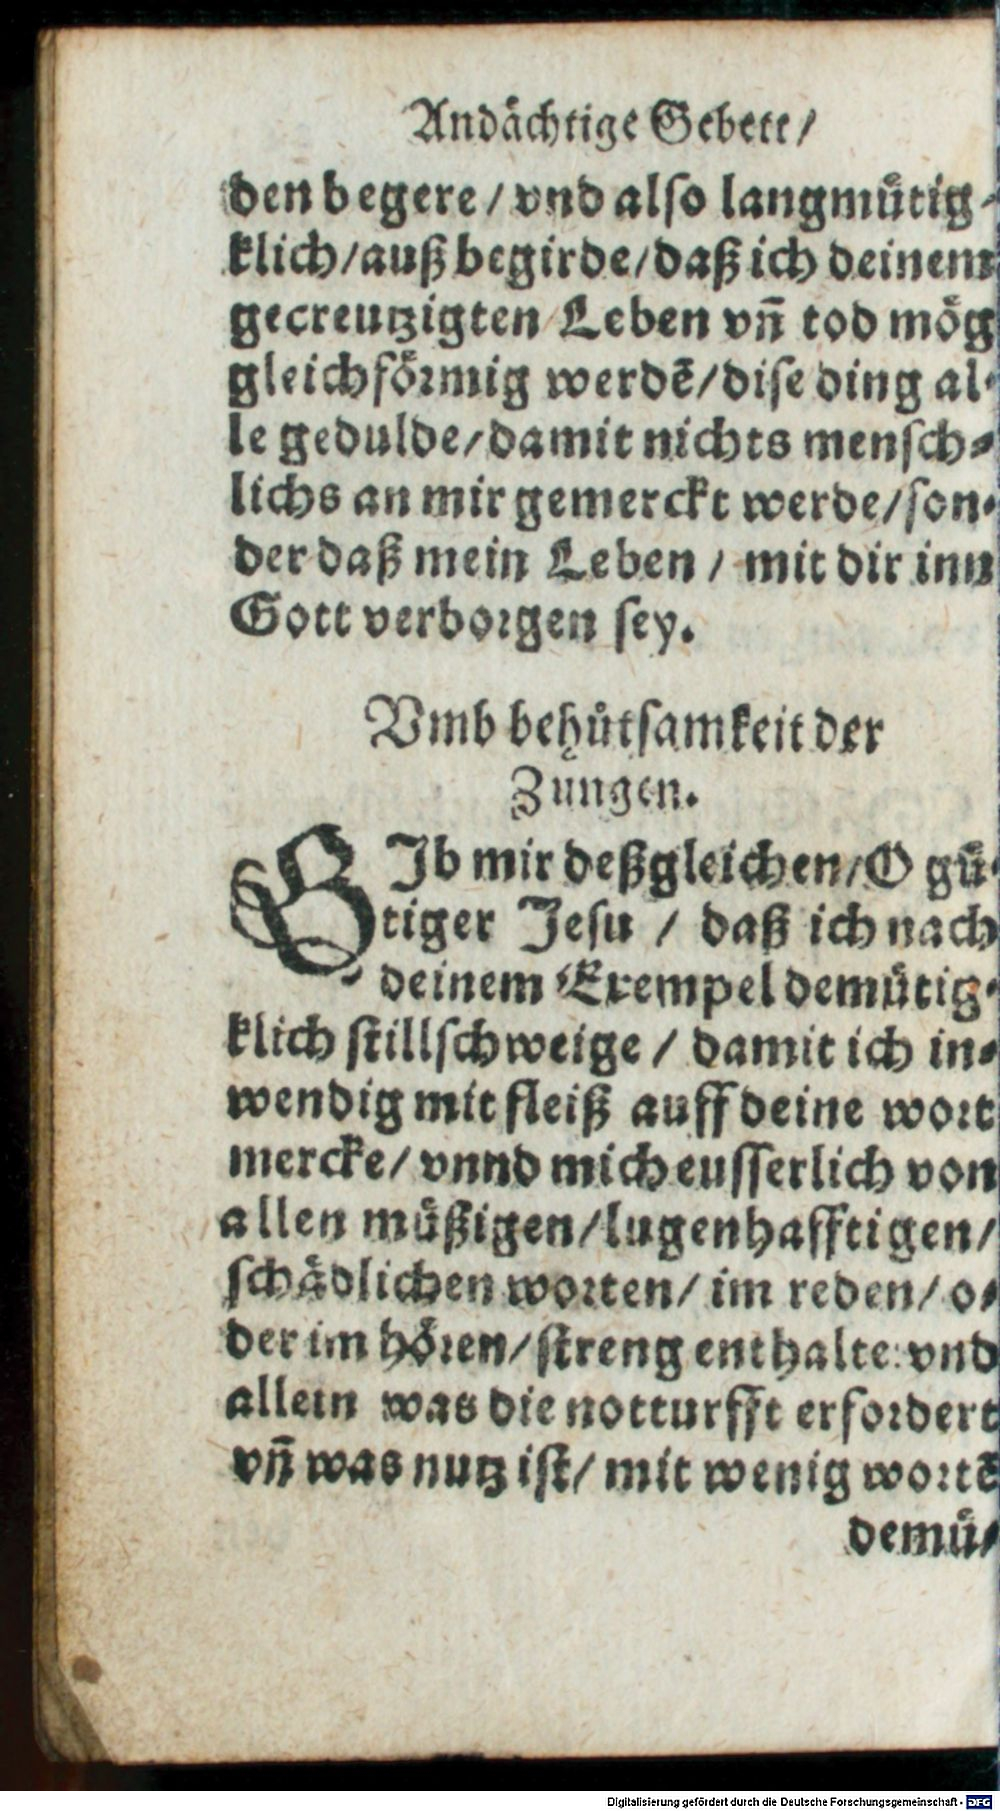 Andächtige Gebett/
den begere/ vnd also langmütig-
klich/ auß begirde/ daß ich deinem
gecreutzigten Leben vñ tod mög
gleichförmig werdē/ dise ding al-
le gedulde/ damit nichts mensch-
lichs an mir gemerckt werde/ son-
der daß mein Leben / mit dir inn
Gott verborgen sey.
Vmb behůtsamkeit der
Zungen.
GIb mir deßgleichen/ O gü-
tiger Jesu / daß ich nach
deinem Exempel demütig-
klich stillschweige / damit ich in-
wendig mit fleiß auff deine wort
mercke/ vnnd mich eusserlich von
allen müßigen/ lugenhafftigen/
schädlichen worten/ im reden/ o-
der im hören/ streng enthalte: vnd
allein was die notturfft erfordert
vñ was nutz ist/ mit wenig wortē
demü-
Digitalisierung gefördert durch die Deutsche Forschungsgemeinschaft - DFG